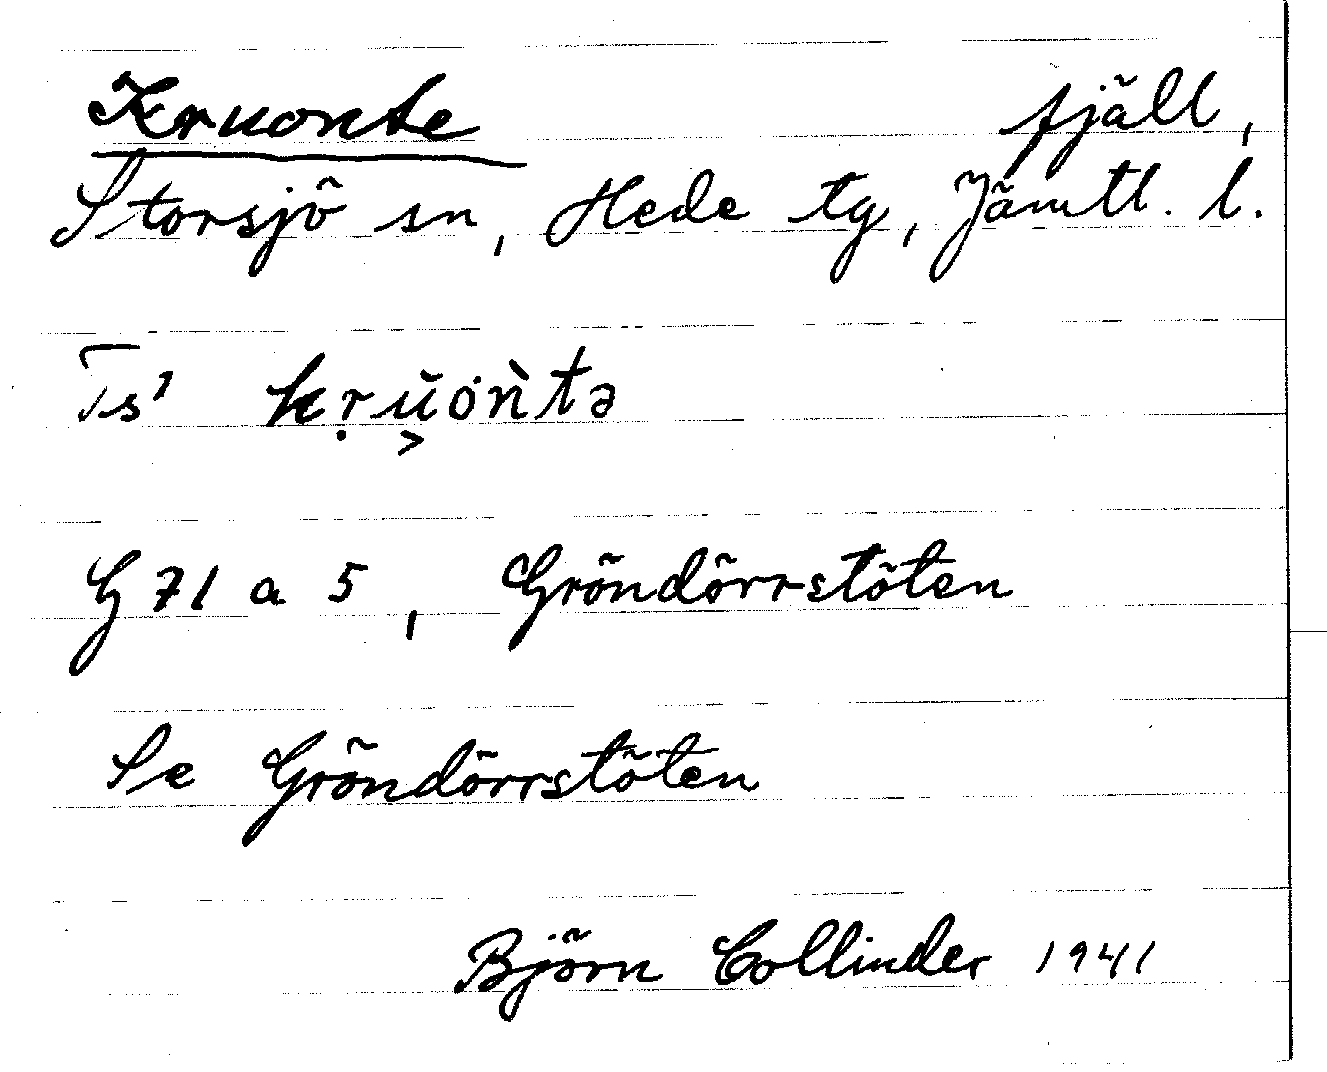 Kruonte fjäll,
Storsjö sn, Hede tg, Jämtl. l.
Ts' kṛŭ̬ȯǹtə
G 71 a 5, Gröndörrstöten
Se Gröndörrstöten
Björn Collinder 1941